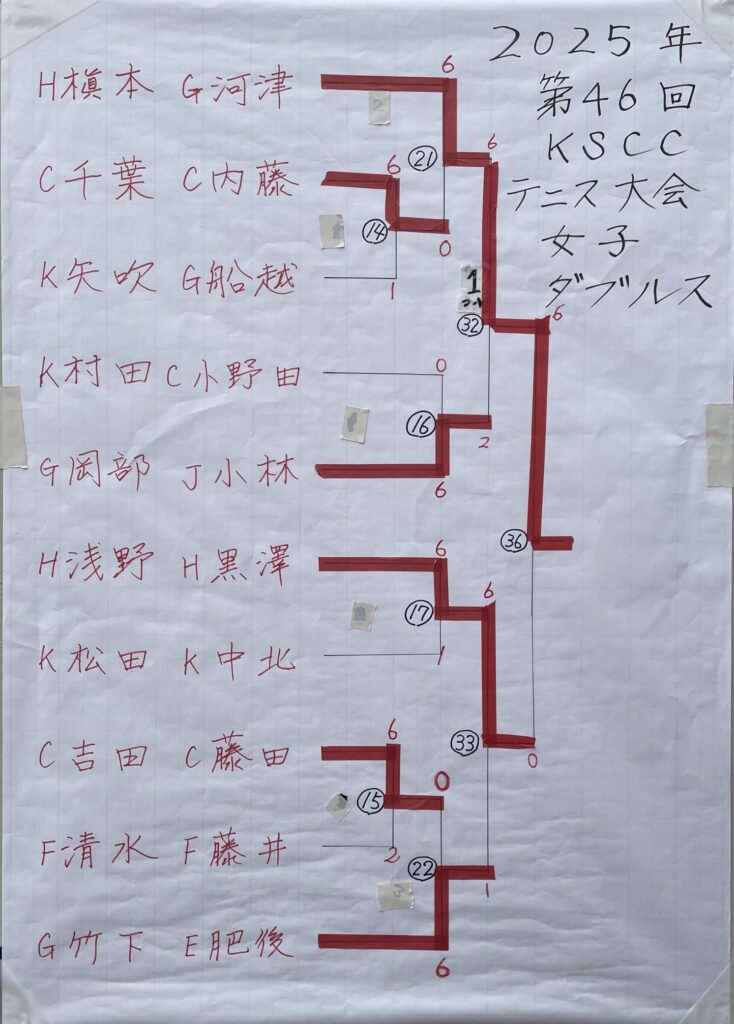 2025年
第46回
KSCC
テニス大会
女子
ダブルス
H槇本 G河津
6
2
C千葉 C内藤
6
㉑
6
⑭
0
K矢吹 G船越
1
1
コート
㉜
6
K村田 C小野田
0
⑯
2
G岡部 J小林
6
㊱
H浅野 H黒澤
6
⑰
6
K松田 K中北
1
C吉田 C藤田
6
㉝
0
0
⑮
F清水 F藤井
2
㉒
1
3
G竹下 E肥後
6